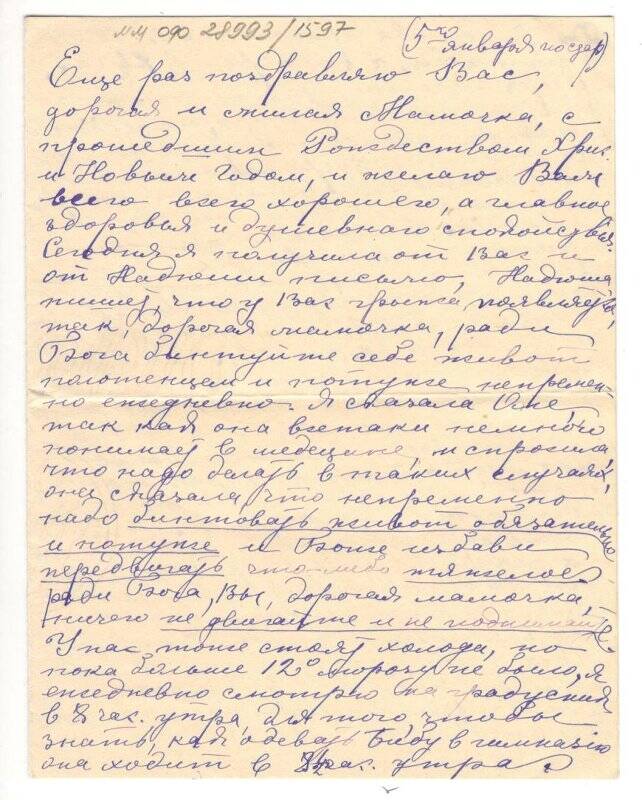 ММ ОФ 28993/1597
(5го января по стар)
Еще раз поздравляю Вас,
дорогая и милая Мамочка, с
прошедшим Рождеством Хрис.
и Новым Годом, и желаю Вам
всего всего хорошего, а главное
здоровья и душевнаго спокойствия.
Сегодня я получила от Вас и
от Надюши письмо, Надюша
пишет, что у Вас грыжа появляется,
так, дорогая мамочка, ради
Бога бинтуйте себе живот
полотенцем и потуже непремен-
но ежедневно. Я сказала Оле,
так как она всетаки немного
понимает в медецине, и спросила,
что надо делать в таких случаях,
она сказала что непременно
надо бинтовать живот обязательно
и потуже и Боже избави
передвигать что-либо тяжелое
ради Бога, Вы, дорогая мамочка,
ничего не двигайте и не поднимайте.
У нас тоже стоят холода, но
пока больше 12° морозу не было, я
ежедневно смотрю на градусник
в 8 час. утра, для того, чтобы
знать, как одевать Бебу в гимназию
она ходит в час. утра